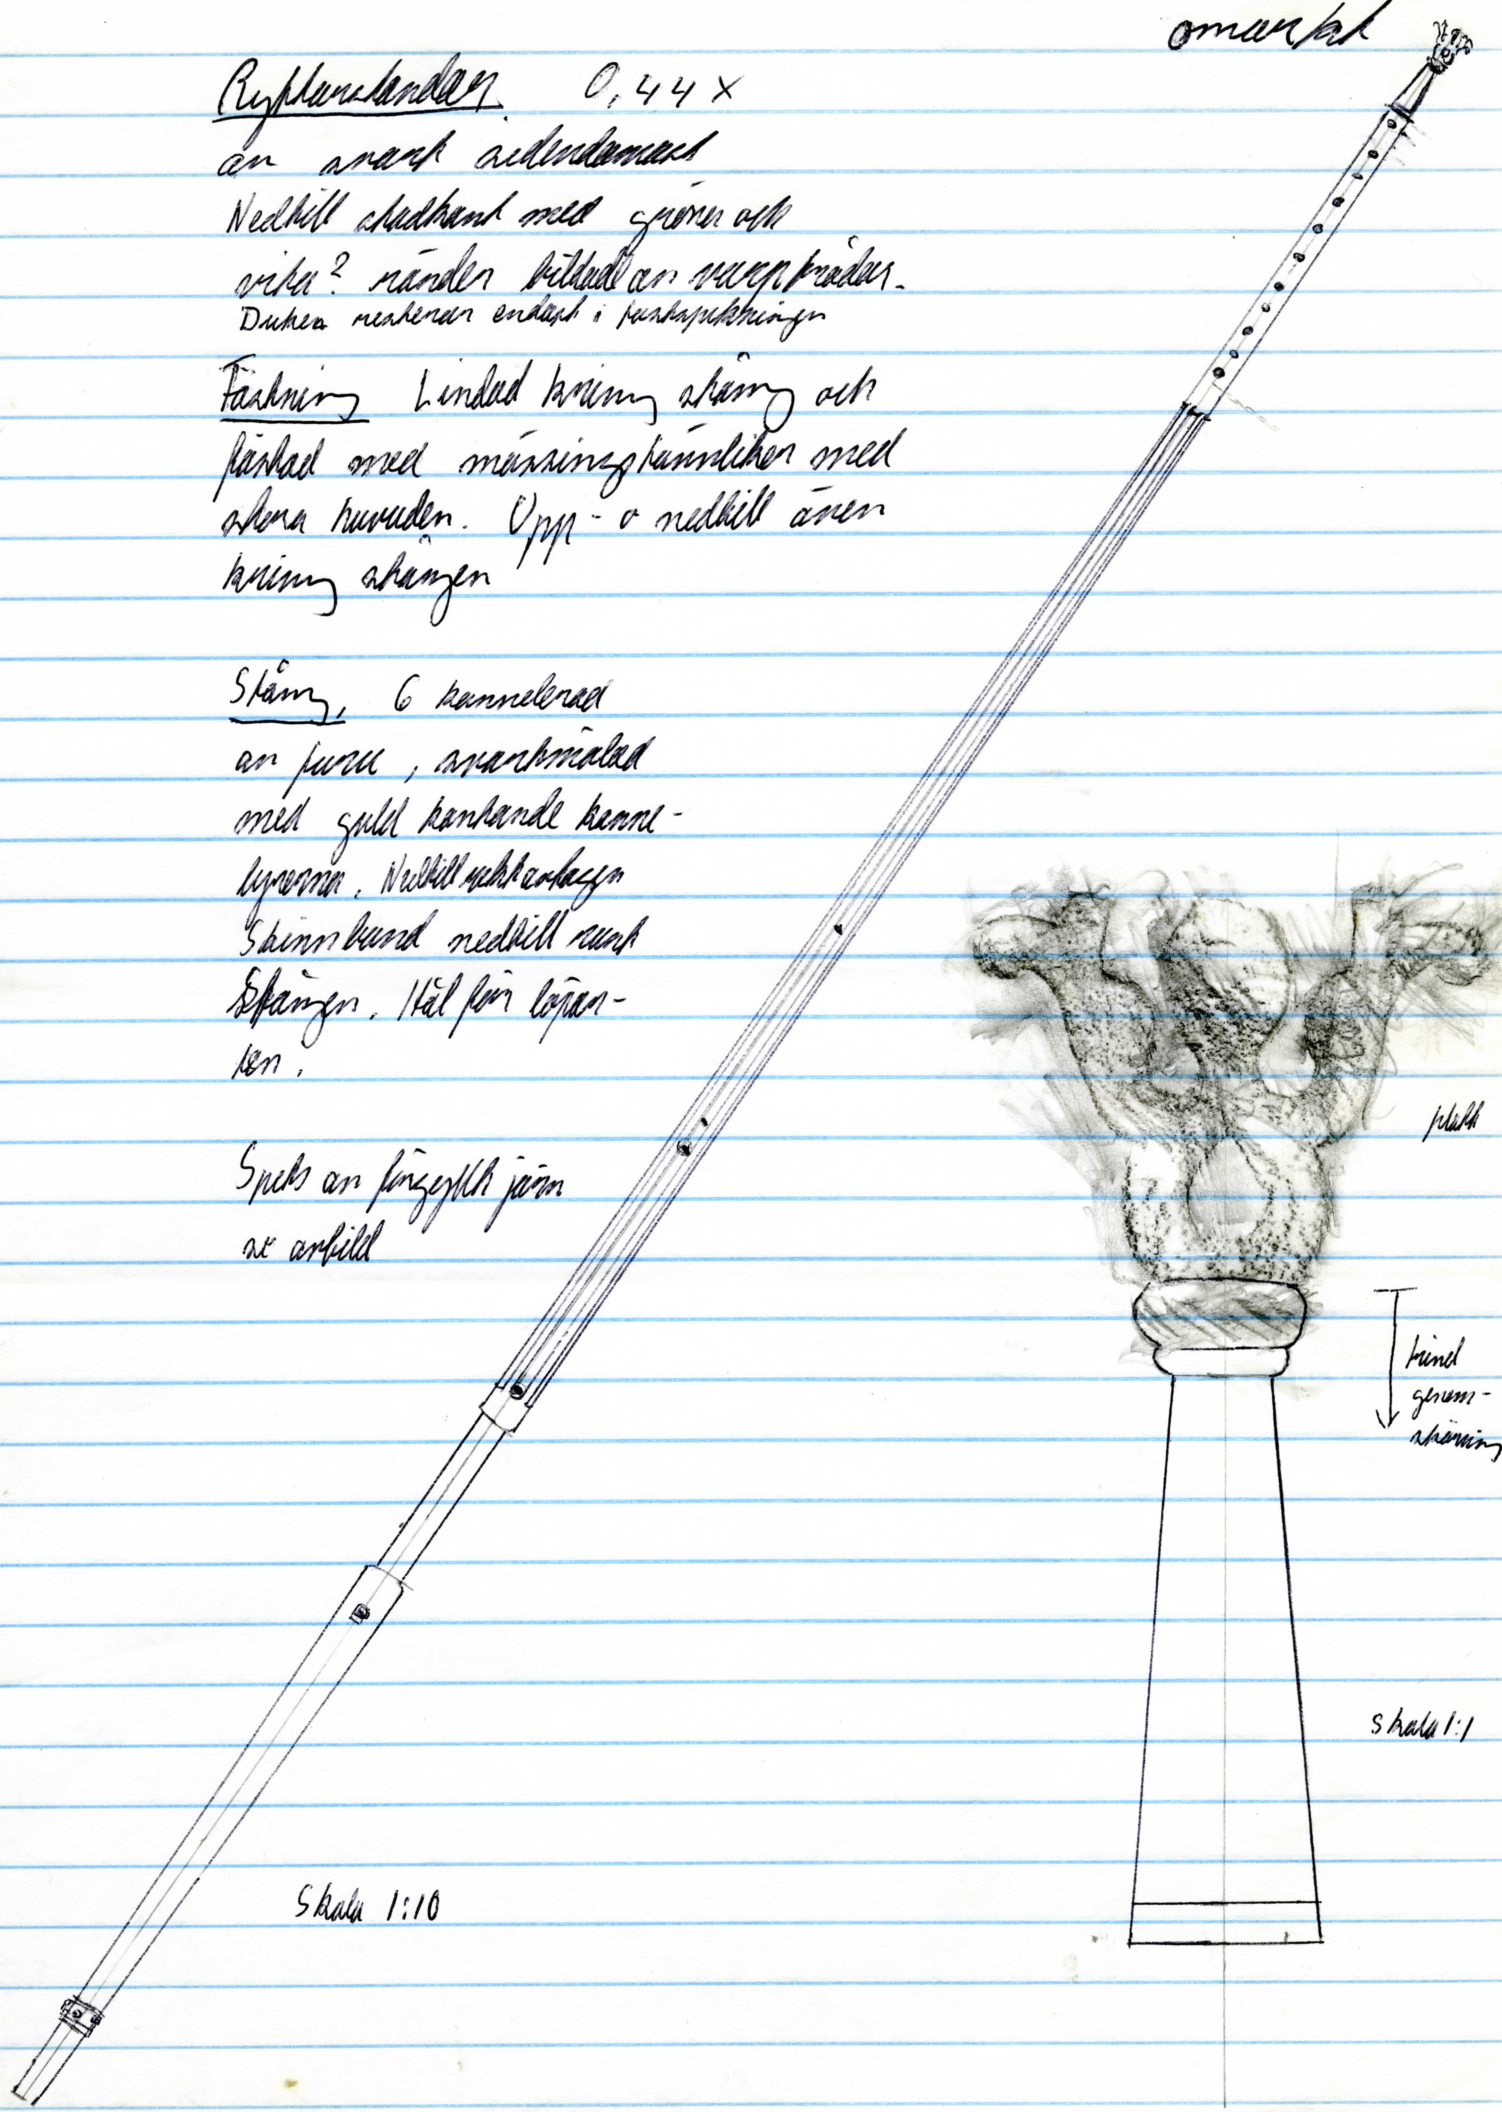 omärkt
Ryttarstandar. 0,44 x
av svart sidendamast
Nedtill stadkant med gröna och
vita? ränder bildade av varptrådar.
Duken resterar endast i fastspikningen
Fästning Lindad kring stång och
fästad med mässingstännlikor med
stora huvuden. Upp- o nedtill även
kring stången
Stång, 6 kannelerad
av furu, svartmålad
med guld kantande kanne-
lyrerna. Nedtill
Skinnband nedtill runt
Stången. Hål för löpar-
ten.
Spets av förgyllt järn
se avbild
platt
trind
genom-
skärning
Skala 1:1
Skala 1:10